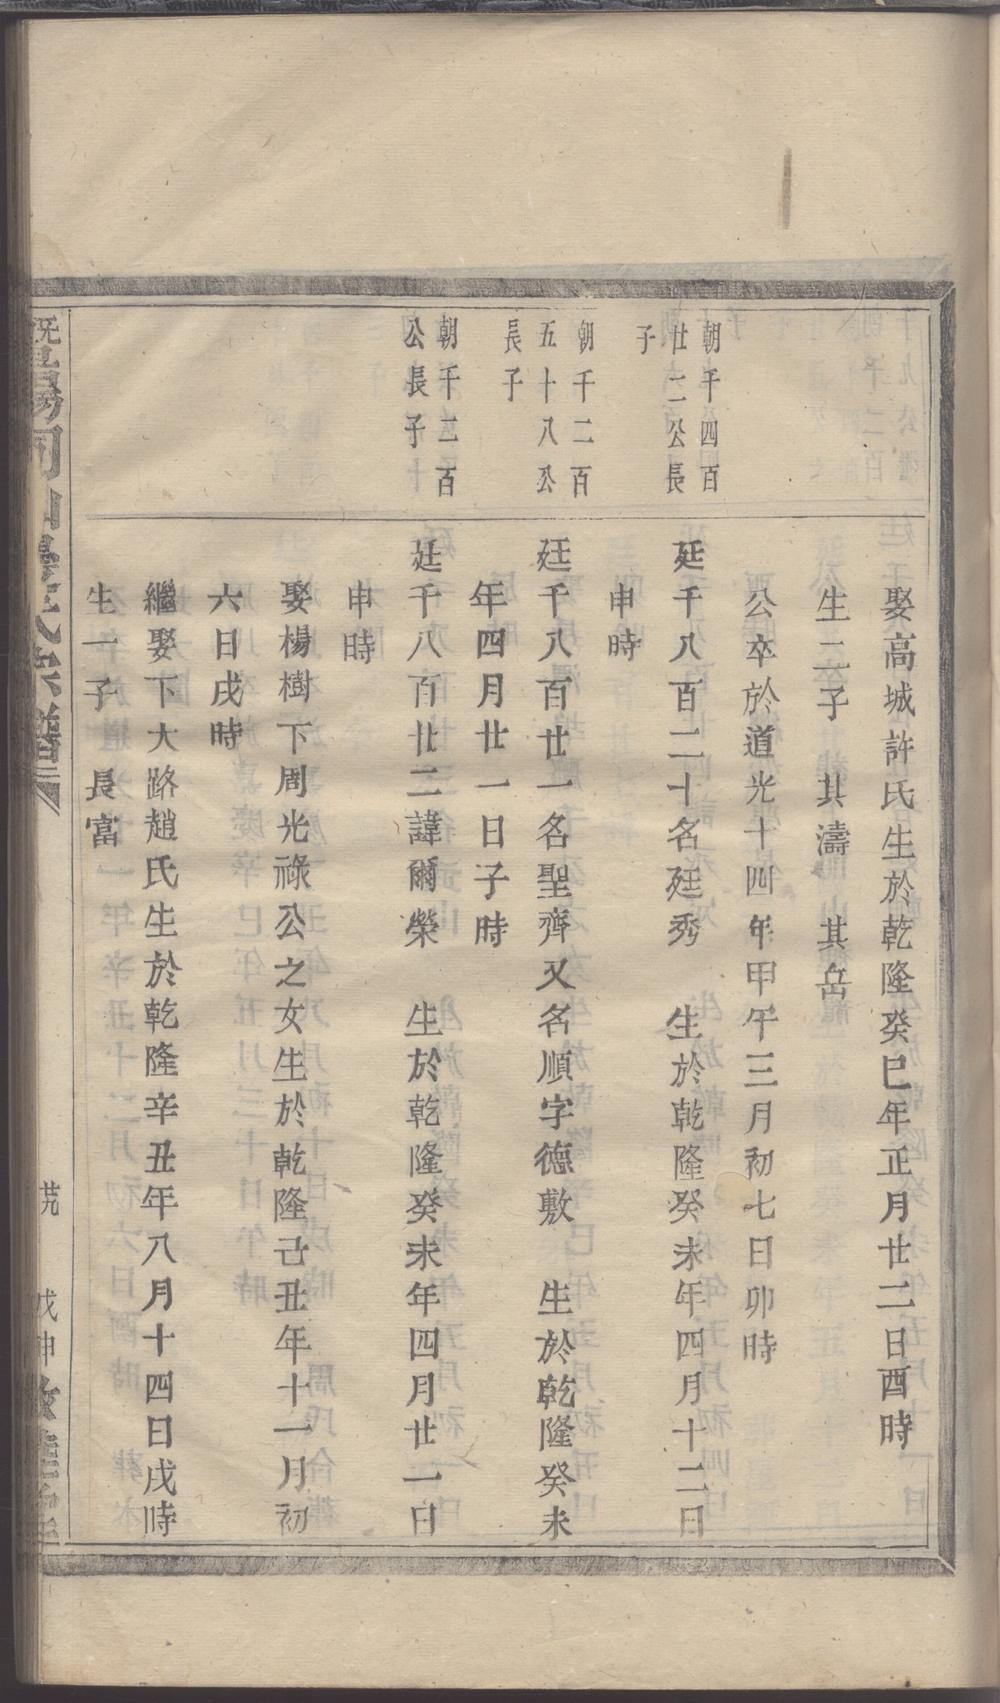 娶高城許氏生於乾隆癸巳年正月廿二日酉時
生二子　其濤　其岳
公卒於道光十四年甲午三月初七日卯時
朝千四百
廿二公長
子
廷千八百二十名廷秀　生於乾隆癸未年四月十二日
申時
朝千二百
五十八公
長子
廷千八百廿一名聖齊又名順字德敷　生於乾隆癸未
年四月廿一日子時
朝千二百
公長子
廷千八百廿二諱爾榮　生於乾隆癸未年四月廿一日
申時
娶楊樹下周光祿公之女生於乾隆己丑年十一月初
六日戌時
繼娶下大路趙氏生於乾隆辛丑年八月十四日戌時
生一子　長富